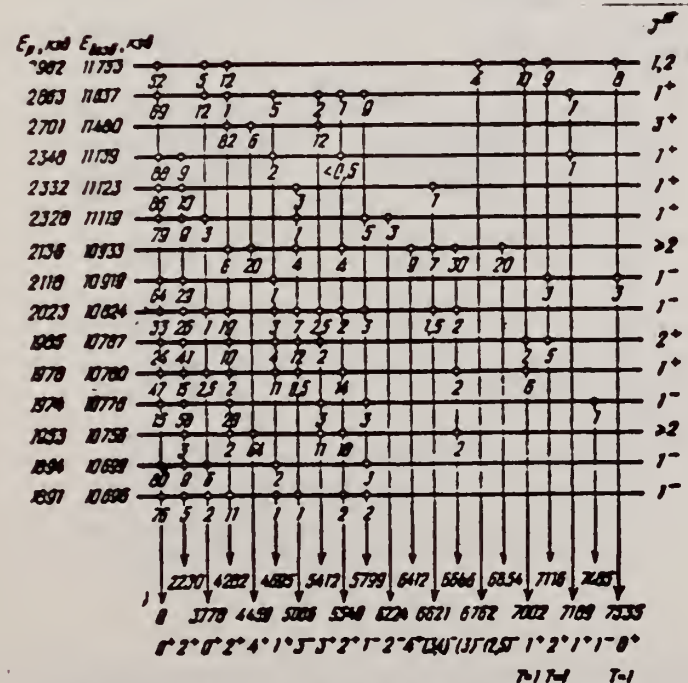 J^π
E_p, кэВ E_возб, кэВ
2982 11753 1,2
52 5 12 4 10 9 8
2863 11637 1⁺
69 12 1 5 2 1 9 1
2701 11480 3⁺
82 6 12
2348 11139 1⁺
88 9 2 <0,5 1
2332 11123 1⁺
86 10 3 1
2328 11119 1⁺
79 9 3 1 5 3
2136 10933 >2
6 20 4 4 9 7 30 20
2118 10919 1⁻
64 29 1 3 3
2023 10824 1⁻
33 26 1 19 3 7 2,5 2 3 1,5 2
1985 10787 2⁺
24 41 10 4 12 2 2 5
1978 10780 1⁺
47 15 2,5 2 11 0,5 14 2 6
1974 10776 1⁻
15 50 28 3 3 1
1953 10756 >2
3 2 64 11 18 2
1894 10699 1⁻
80 9 6 2 3
1891 10696 1⁻
76 5 2 11 1 1 2 2
2230 4282 4695 5412 5799 6412 6666 6854 7116 7485
0 3778 4459 5006 5548 6224 6621 6762 7002 7189 7535
0⁺ 2⁺ 0⁺ 2⁺ 4⁺ 1⁺ 3⁻ 3⁺ 2⁺ 1⁻ 2⁻ 4⁺ (3,4)⁻ (3)⁻ 1⁺ 2⁺ 1⁺ 1⁻ 0⁺
T=1 T=1 T=1